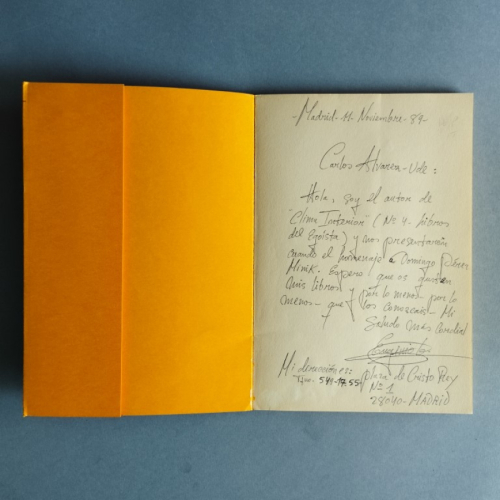 - Madrid - 11 Noviembre - 89 -
Carlos Alvarez - Ude :
Hola, soy el autor de
"Clima                " ( Nº 4 - Libros
del Egoísta ) y nos presentaron
cuando el homenaje a Domingo Pérez
Minik - Espero que os gusten
mis libros y por lo menos - por lo
menos - que los conozcais - Mi
Saludo más cordial
Mi dirección es: plaza de Cristo Rey
Nº 1
28040 - MADRID